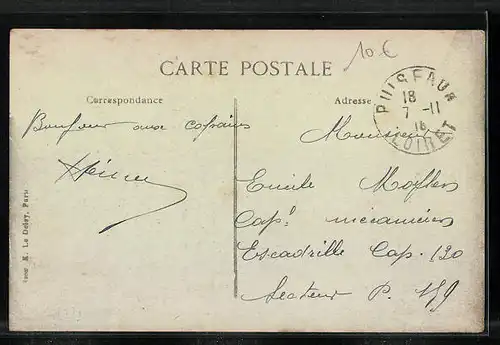 10 €
CARTE POSTALE
Correspondance
Bonjour aux copains
Adresse
PUISEAUX
18
7 -11
16
LOIRET
Monsieur
Emile
Cap! mécanicien
Escadrille Cap. 120
Secteur P. 159
Imp. E. Le Deley, Paris